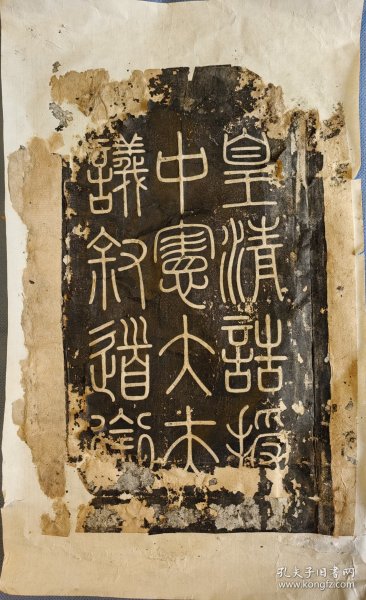 皇清誥授
中憲大夫
議敘道銜
孔夫子旧书网
www.kongfz.com